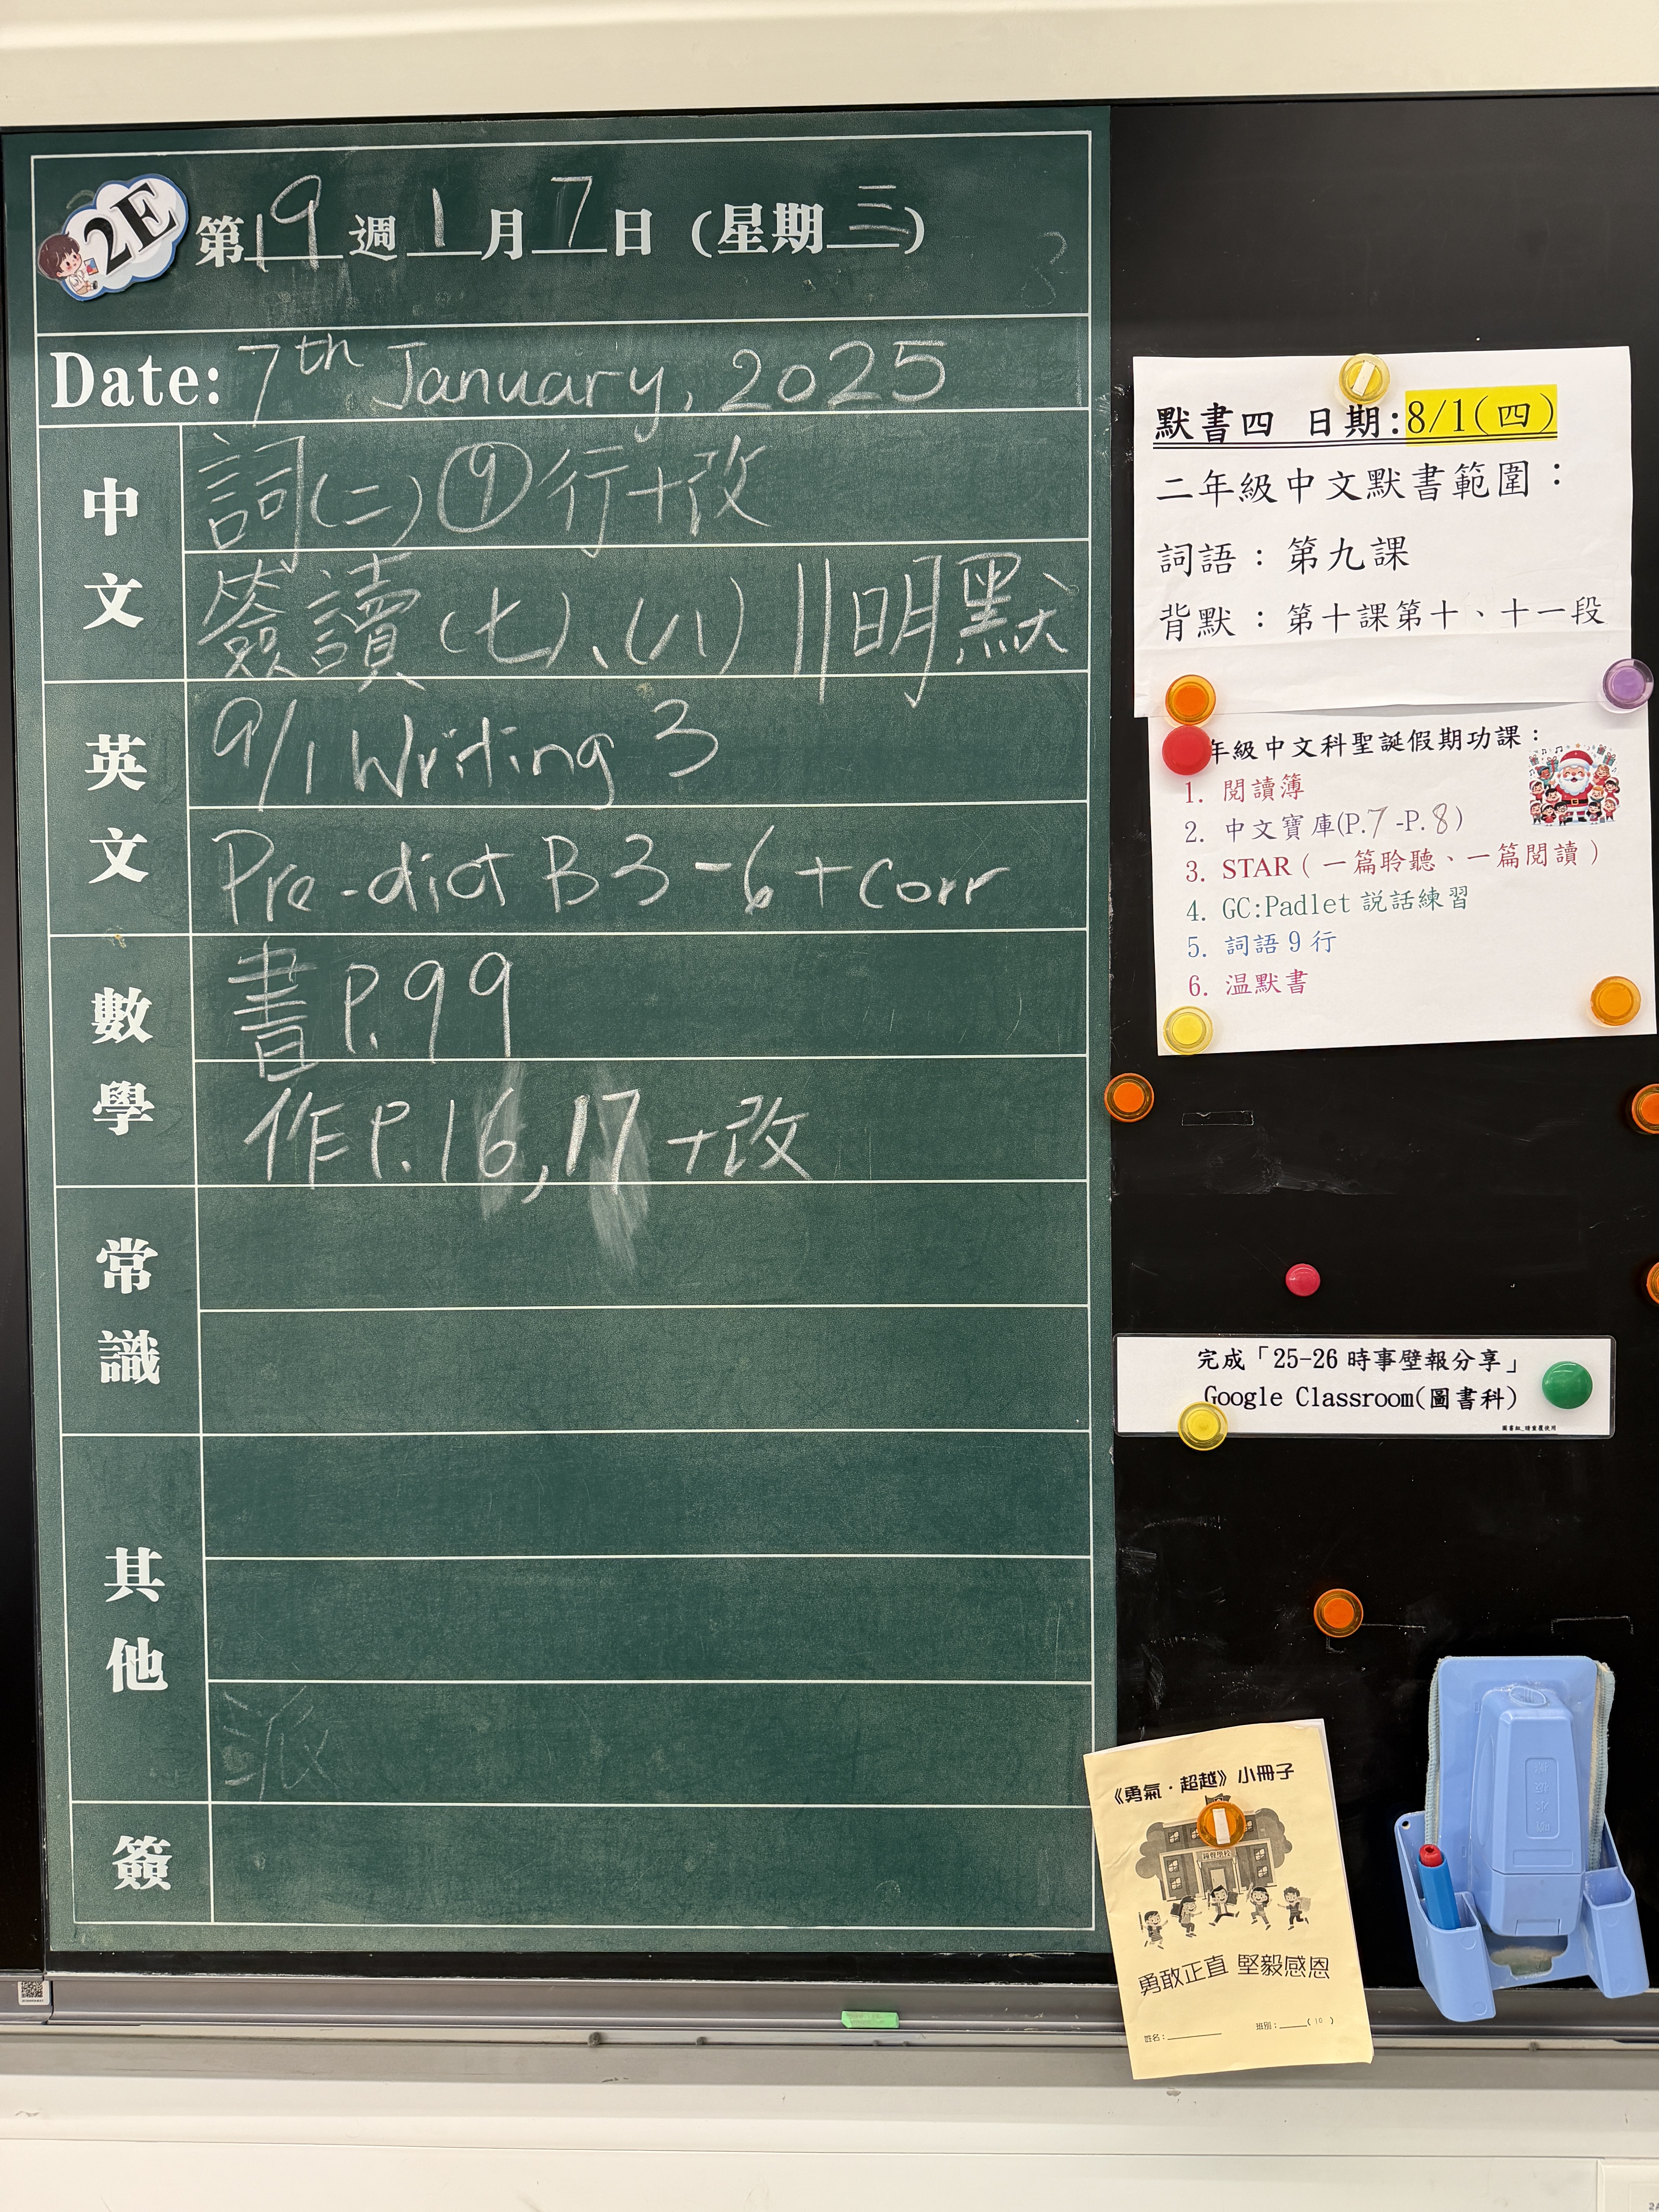 2E
第19週1月7日(星期三)
Date: 7th January, 2025
中文
詞(二)⑨行+改
簽讀(七)、(八)||明默
英文
9/1 Writing 3
Pre-dict B3-6+corr
數學
書P.99
作P.16,17+改
常識
其他
派
簽
默書四 日期:8/1(四)
二年級中文默書範圍：
詞語：第九課
背默：第十課第十、十一段
年級中文科聖誕假期功課：
1. 閱讀簿
2. 中文寶庫(P.7-P.8)
3. STAR(一篇聆聽、一篇閱讀)
4. GC:Padlet 説話練習
5. 詞語9行
6. 温默書
完成「25-26時事壁報分享」
Google Classroom(圖書科)
《勇氣．超越》小冊子
勇敢正直 堅毅感恩
姓名：
班別：( 10 )